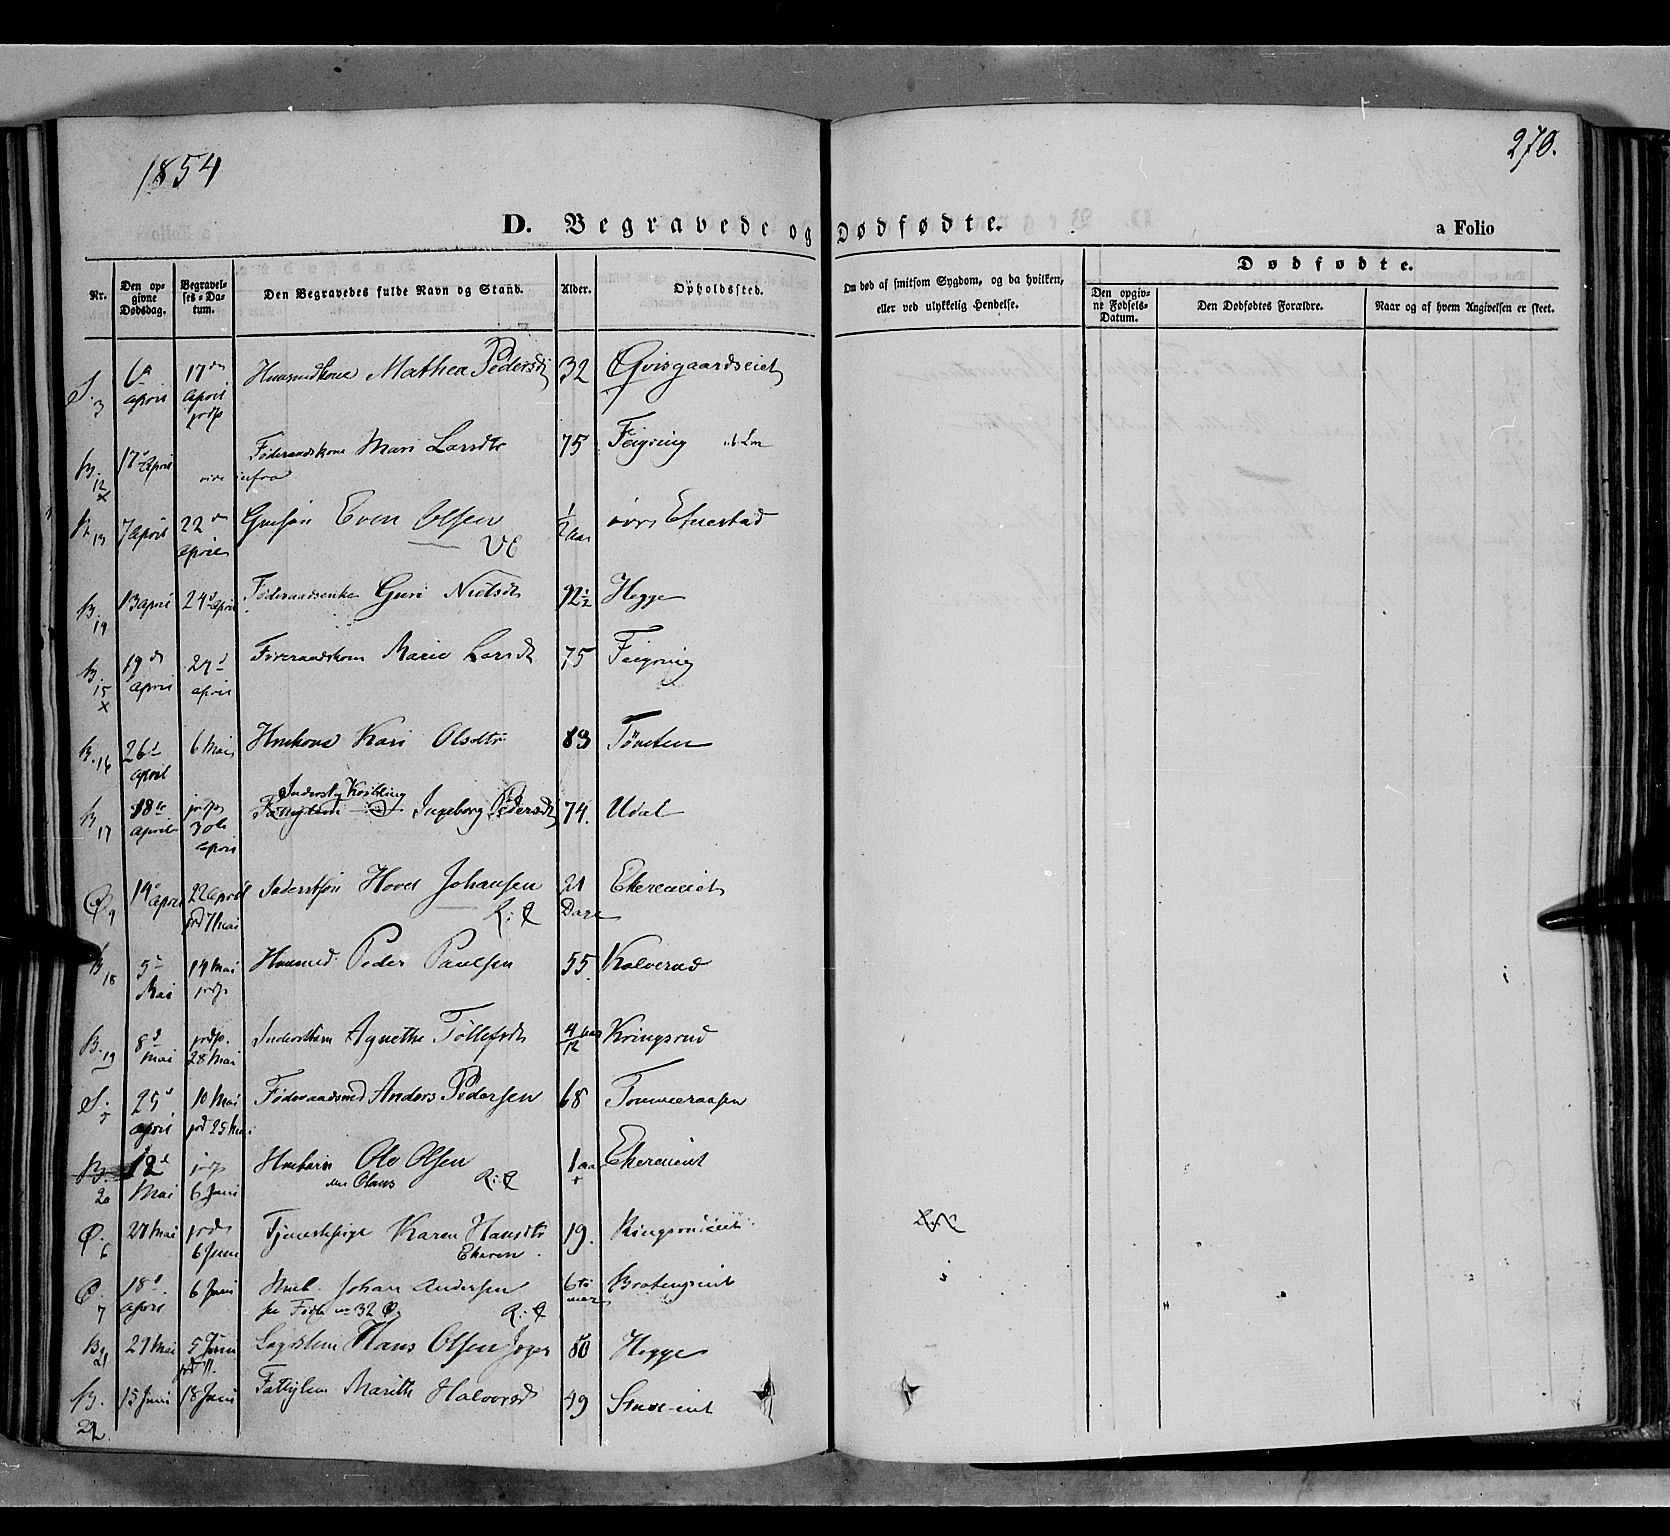 1854
270.
D. Begravede og Dødfødte.
a Folio
Nr.
Den opgivne Dødsdag.
Begravelses-Datum.
Den Begravedes fulde Navn og Stand.
Alder.
Opholdssted.
Om død af smitsom Sygdom, og da hvilken, eller ved ulykkelig Hendelse.
Dødfødte.
Den opgivne Fødsels-Datum.
Den Dødfødtes Forældre.
Naar og af hvem Angivelsen er skeet.
S. 3 6 april 17 April Huusmdkone Mathea Pedersd 32 Qvisgaardseiet
B. 12 x 17 April Føderaadskone Mari Larsdtr 75 Feigring
vide infra
B. 13 7 april 22 april Gmsøn Even Olsen 1/2 aar øvre Efnestad
B. 14 13 april 24 april Føderaadsenke Guri Nielsdt 92 1/2 Hegge
B. 15 x 19 april 27 april Føderaadskone Marie Larsdt 75 Feigring
B. 16 26 april 6 Mai Huuskone Kari Olsdtr 83 Tømten
B 17 18 april 30 April Inderst Ingeborg Pedersdt 74. Udal
Ø 9 14 april 22 april 7 Mai Inderstsøn Hovel Johansen 21 Dage Ekereneiet
B 18 5 Mai 14 Mai Huusmd Peder Paulsen 55. Kolverud
B. 19 8 Mai 28 Mai Inderstbarn Agnethe Tollefsdt 4/12 aar Kringsrud
S. 5 25 april 10 Mai 25 Mai Føderaadsmd Anders Pedersen 68 Tommeraasen
B. 20 12 Mai 6 Juni Huusbarn Ole Olsen 1 aar Ekereneiet
Claus
Ø. 6 28 Mai 6 Juni Tjenestepige Karen Hansdtr 19. Ringsrudeiet
Ekeren
Ø. 7 18 april 6 Juni Johan Andersen 6 Bratengseiet
32
B. 21 29 Mai 5 Juni Lægdslem Hans Olsen 80 Hegge
B. 22. 15 Juni 18 Juni Fattiglem Marithe Halvorsd 49 Stuveeiet